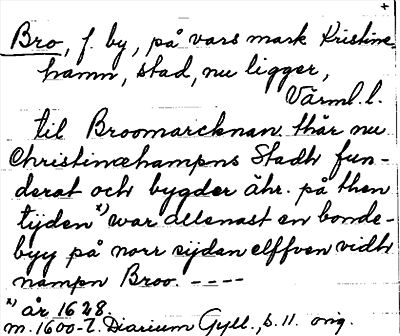 +
Bro, f. by, på vars mark Kristine-
hamn, stad, nu ligger,
Värml. l.
til Broomarcknan thär nu
Christinæhampns Stadh fun-
derat och bygder ähr. på then
tijden x) war allenast en bonde-
byy på norr sijdan elffven vidh
nampn Broo. ----
x) år 1628.
m. 1600-t. Diarium Gyll., s. 11. orig.